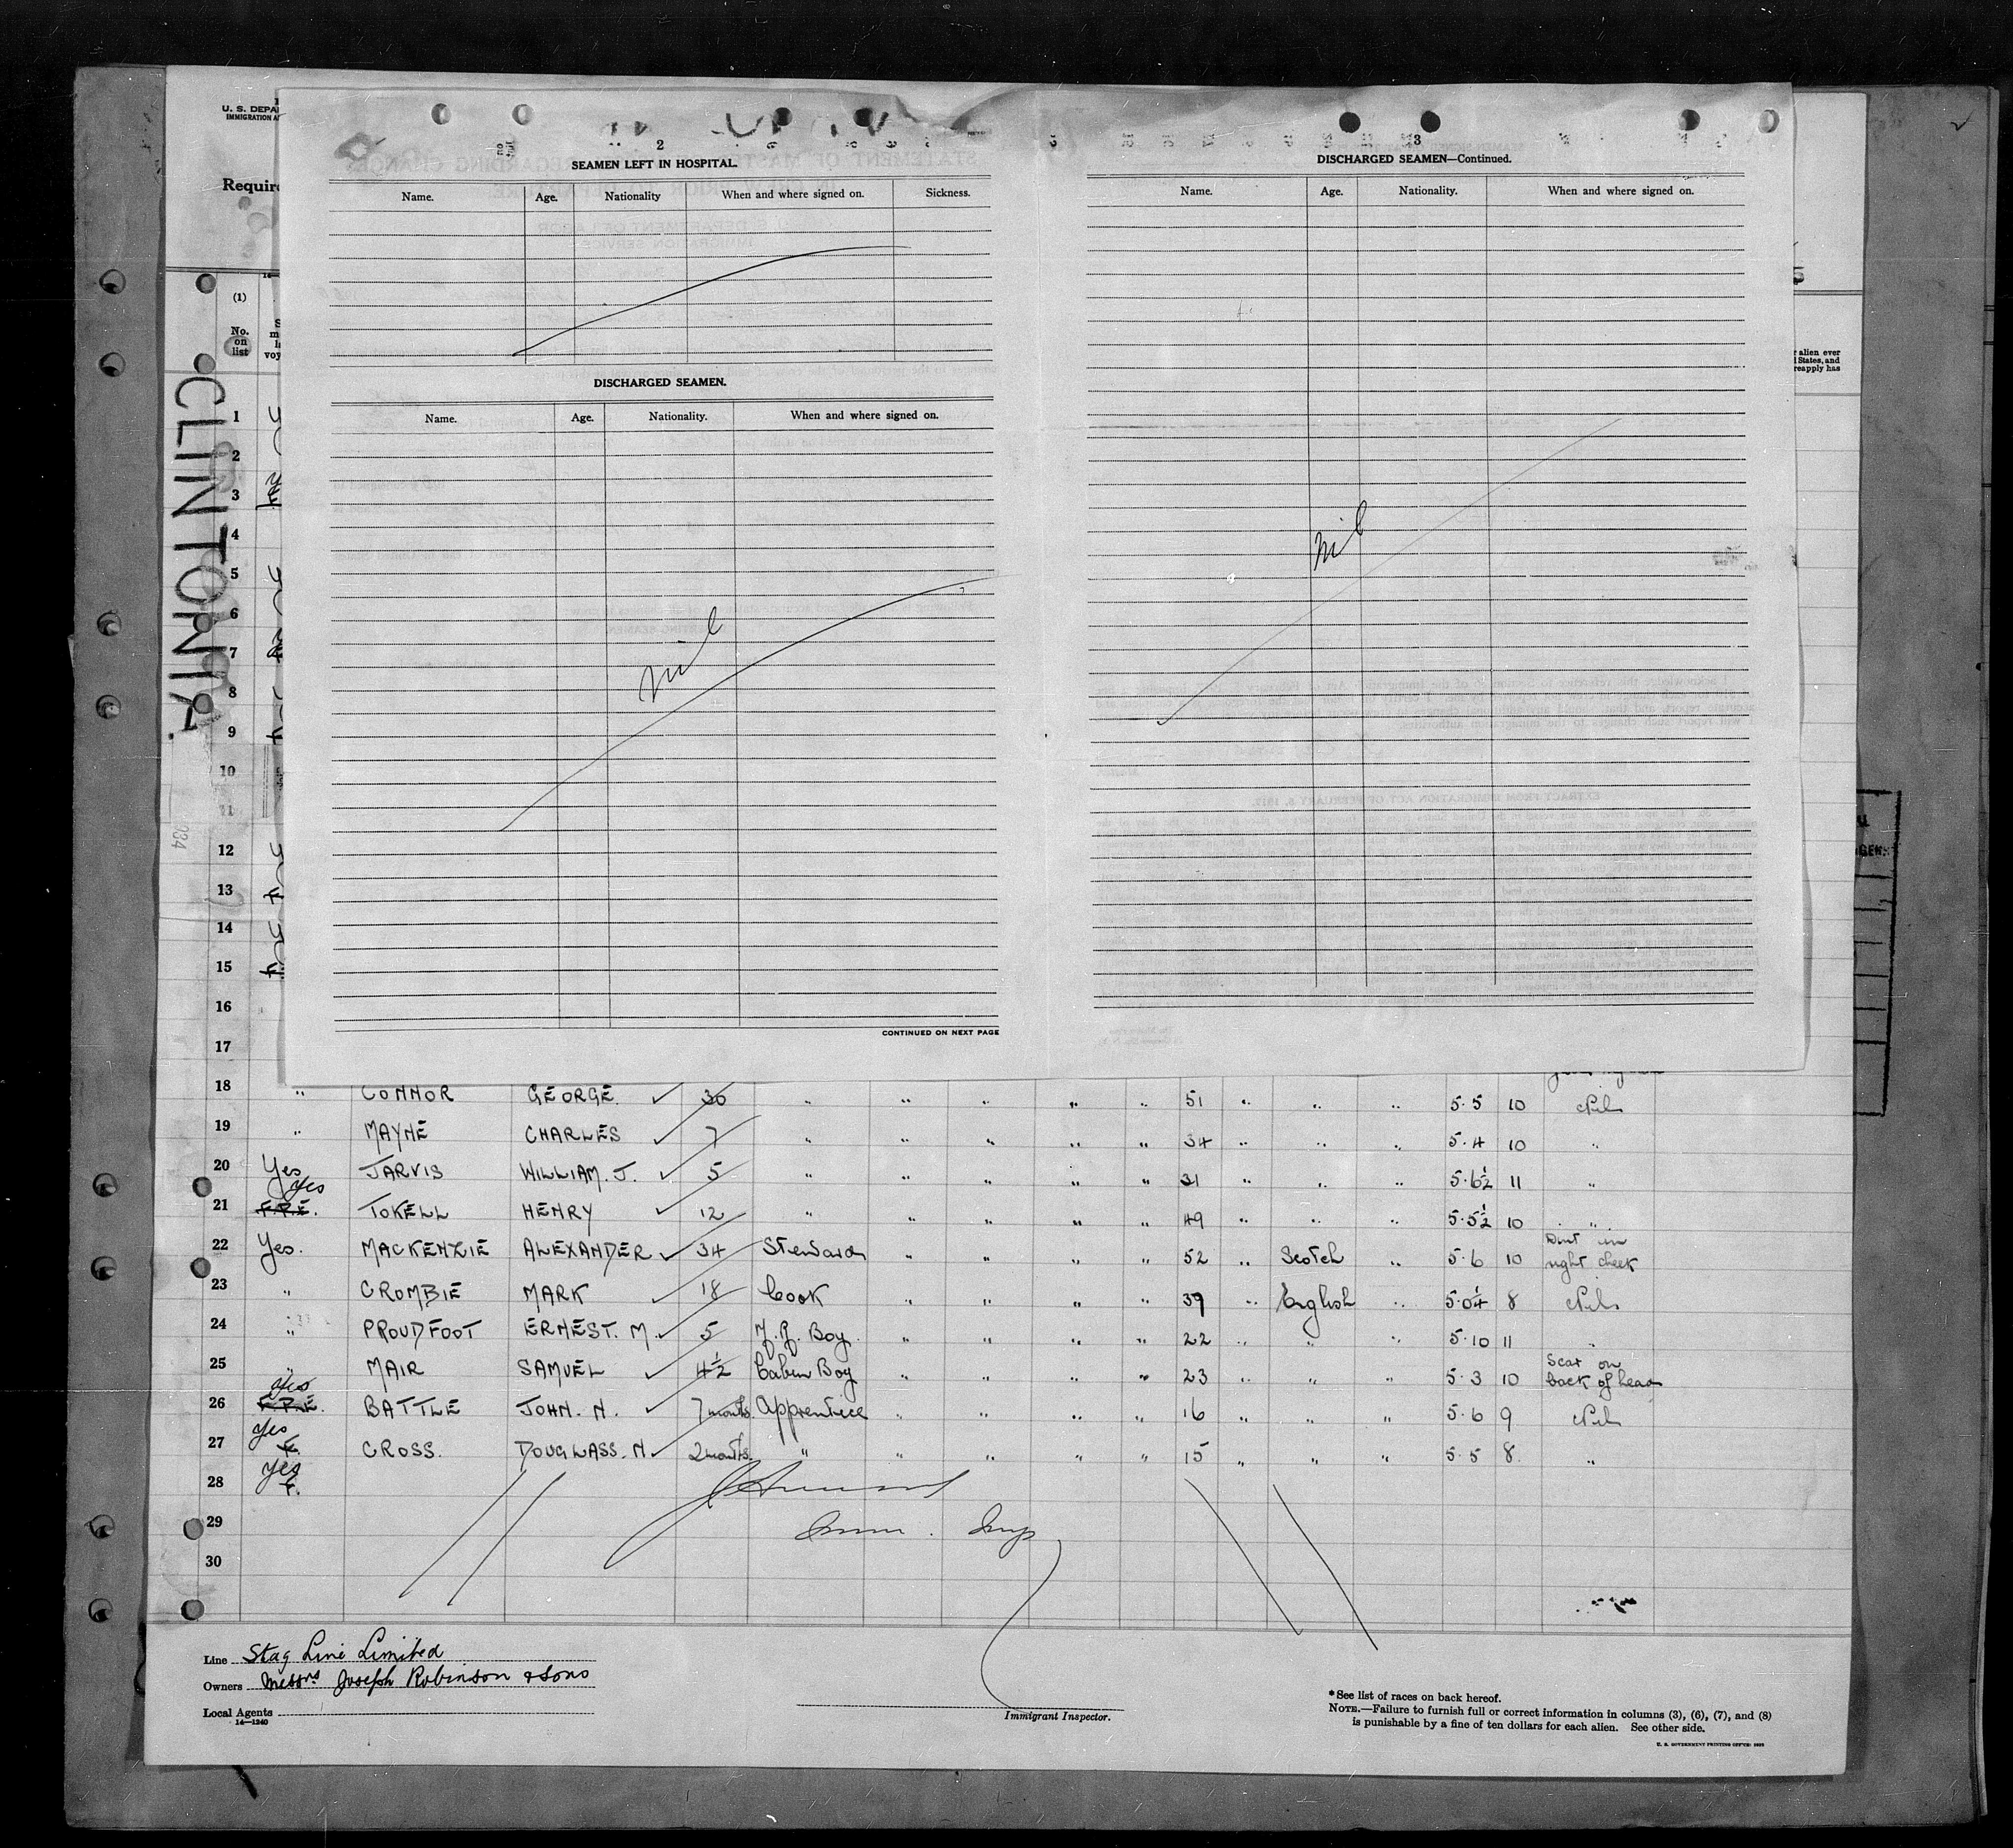 U. S. DEPA
IMMIGRATION A
Require
2
SEAMEN LEFT IN HOSPITAL.
Name. Age. Nationality When and where signed on. Sickness.
DISCHARGED SEAMEN.
Name. Age. Nationality. When and where signed on.
nil
CONTINUED ON NEXT PAGE
3
DISCHARGED SEAMEN—Continued.
Name. Age. Nationality. When and where signed on.
nil
r alien ever
States, and
reapply has
(1)
No.
on
list
CLINTONIA.
1
2
3
4
5
6
7
8
9
10
11
12
13
14
15
16
17
18 " CONNOR GEORGE. ✓ 30 " " " " " 51 " " " 5.5 10 Nil
19 " MAYNE CHARLES ✓ 7 " " " " " 34 " " " 5.4 10 "
20 Yes JARVIS WILLIAM. J. ✓ 5 " " " " " 31 " " " 5.6½ 11 "
21 Yes F.R.E. TOKELL HENRY ✓ 12 " " " " " 49 " " " 5.5½ 10 "
22 Yes. MACKENZIE ALEXANDER ✓ 34 Steward " " " " 52 " Scotch " 5.6 10 Dint in right cheek
23 " CROMBIE MARK ✓ 18 Cook " " " " 39 " English " 5.0¼ 8 Nil
24 " PROUDFOOT ERNEST. M. ✓ 5 M.R. Boy. " " " " 22 " " " 5.10 11 "
25 " MAIR SAMUEL ✓ 4½ Cabin Boy " " " " 23 " " " 5.3 10 Scar on back of head
26 Yes F.R.E. BATTLE JOHN. N. ✓ 7 months. Apprentice " " " " 16 " " " 5.6 9 Nil
27 Yes F. CROSS. DOUGLASS. N. ✓ 2 months. " " " " " 15 " " " 5.5 8 "
28 Yes F.
29
30
Line Stag Line Limited
Owners Messrs Joseph Robinson & Sons
Local Agents
14—1240
Immigrant Inspector.
*See list of races on back hereof.
NOTE.—Failure to furnish full or correct information in columns (3), (6), (7), and (8)
is punishable by a fine of ten dollars for each alien. See other side.
U. S. GOVERNMENT PRINTING OFFICE: